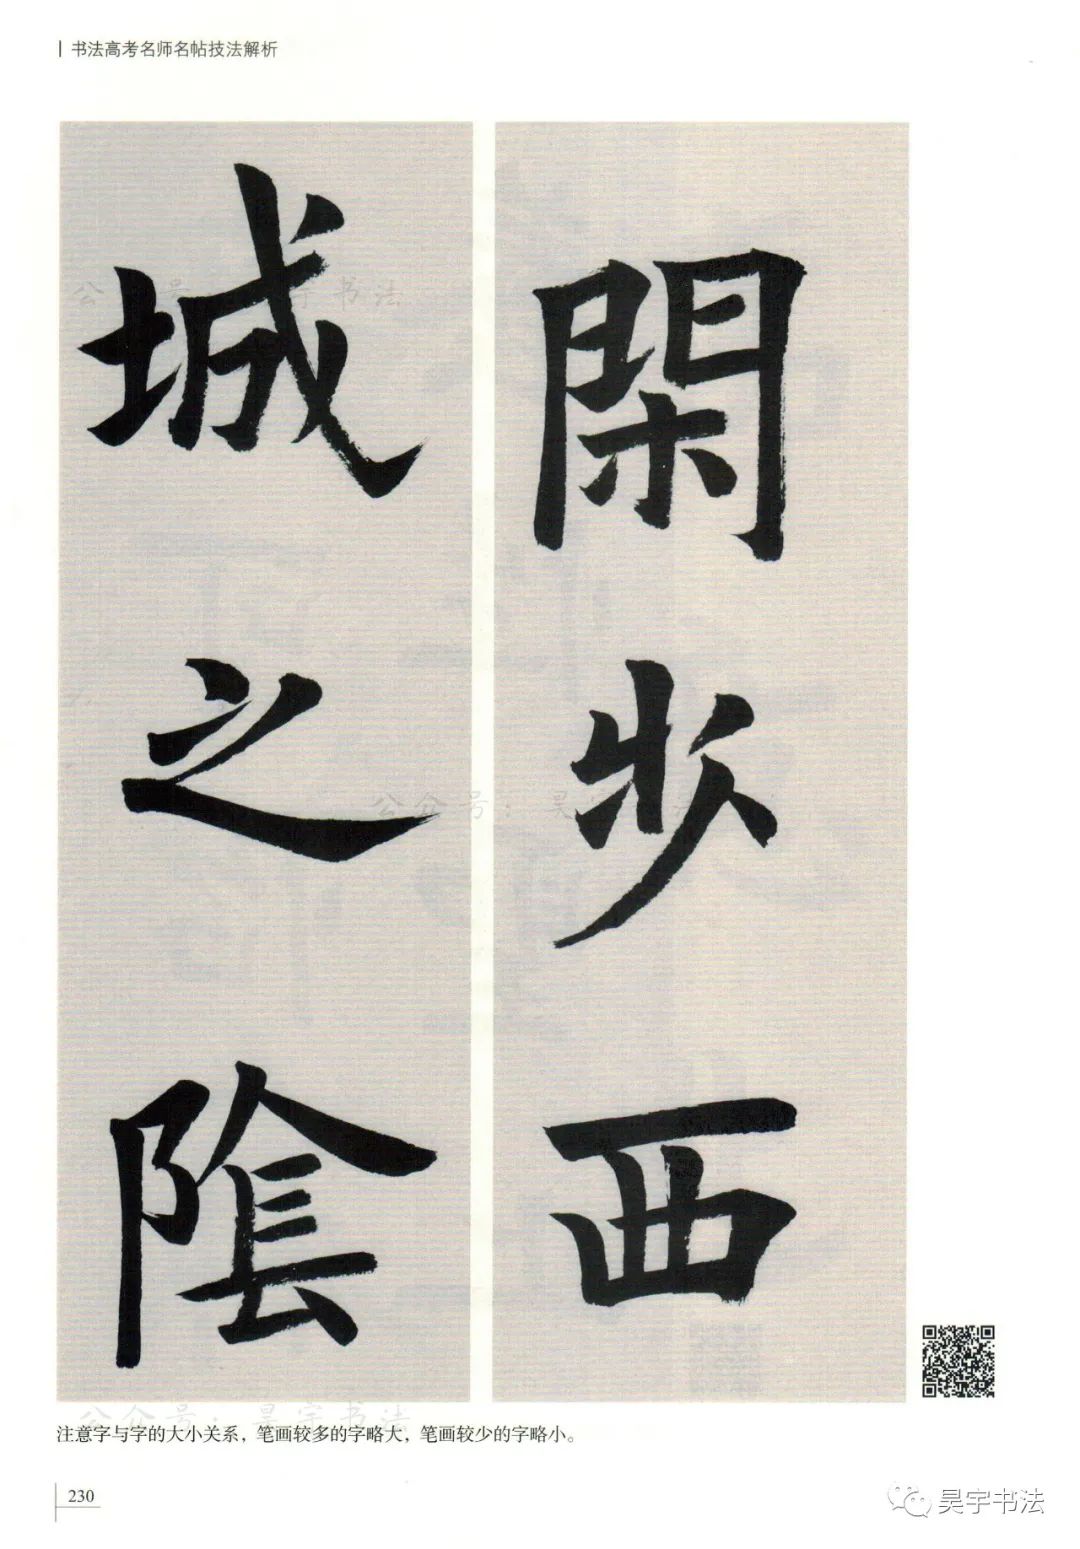 书法高考名师名帖技法解析
閑步西
城之陰
公众号：昊宇书法
公众号：昊
公众号：昊宇书法
注意字与字的大小关系，笔画较多的字略大，笔画较少的字略小。
230
昊宇书法